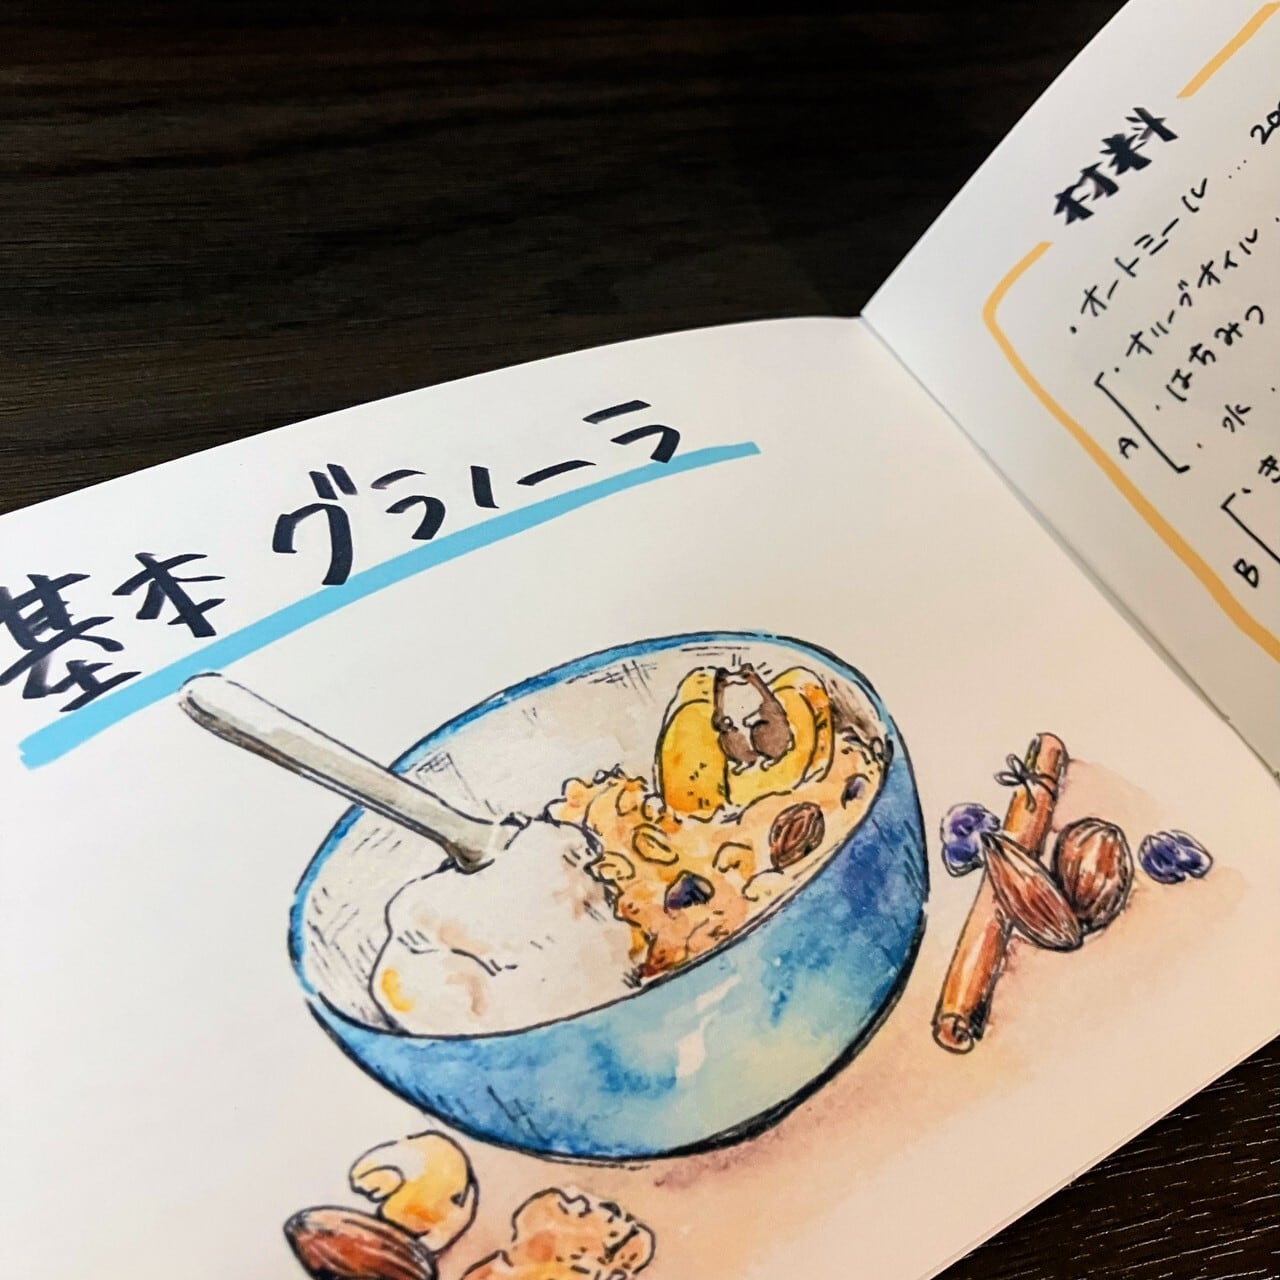 基本 グラノーラ
材料
・オートミール .... 20
・オリーブオイル ・
・はちみつ
・水 ・
A
・き
B